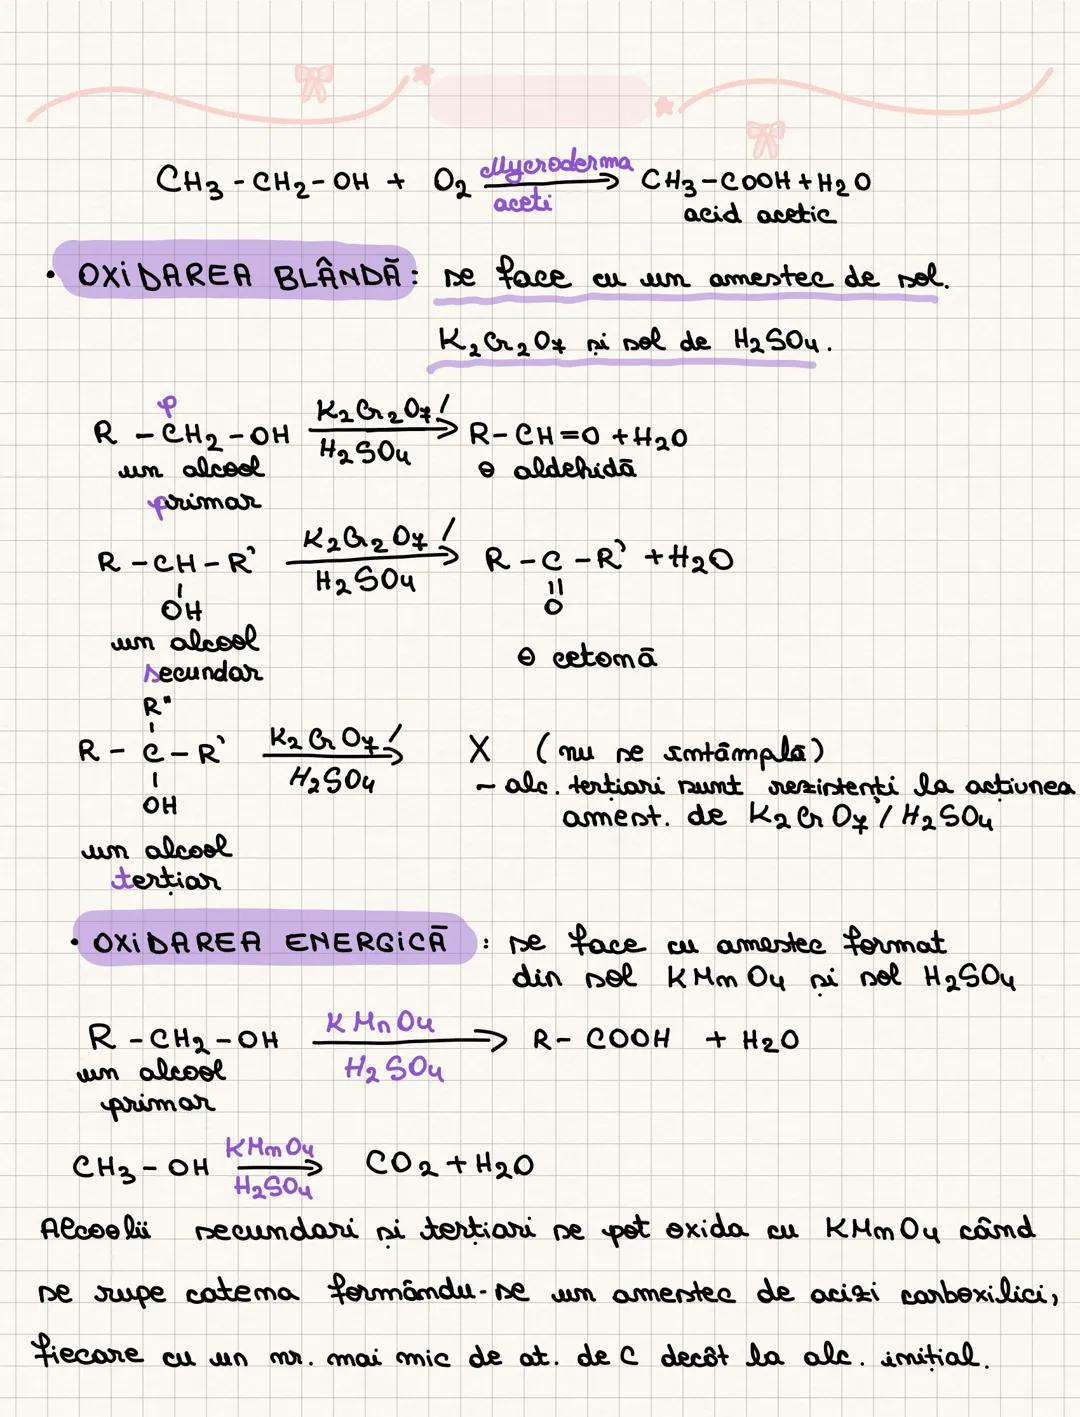 CH3 - CH2 - OH + O2 Mycroderma aceti → CH3 - COOH + H2O
acid acetic
• OXiDAREA BLÂNDĂ: se face cu un amestec de sol.
K2Cr2O7 și sol de H2SO4.
p
R - CH2 - OH K2Cr2O7 / H2SO4 → R - CH = O + H2O
un alcool primar
o aldehidă
R - CH - R' K2Cr2O7 / H2SO4 → R - C - R' + H2O
OH
O
un alcool secundar
o cetonă
R"
R - C - R' K2CrO7 / H2SO4 → X (nu se întâmplă)
OH
- alc. terțiari sunt rezistenți la acțiunea
amest. de K2CrO7 / H2SO4
un alcool
terțiar
• OXiDAREA ENERGICĂ : se face cu amestec format
din sol KMnO4 și sol H2SO4
R - CH2 - OH KMnO4 H2SO4 → R - COOH + H2O
un alcool
primar
CH3 - OH KMnO4 H2SO4 → CO2 + H2O
Alcoolii secundari și terțiari se pot oxida cu KMnO4 când
se rupe catena formându-se un amestec de acizi carboxilici,
fiecare cu un nr. mai mic de at. de C decât la alc. inițial.